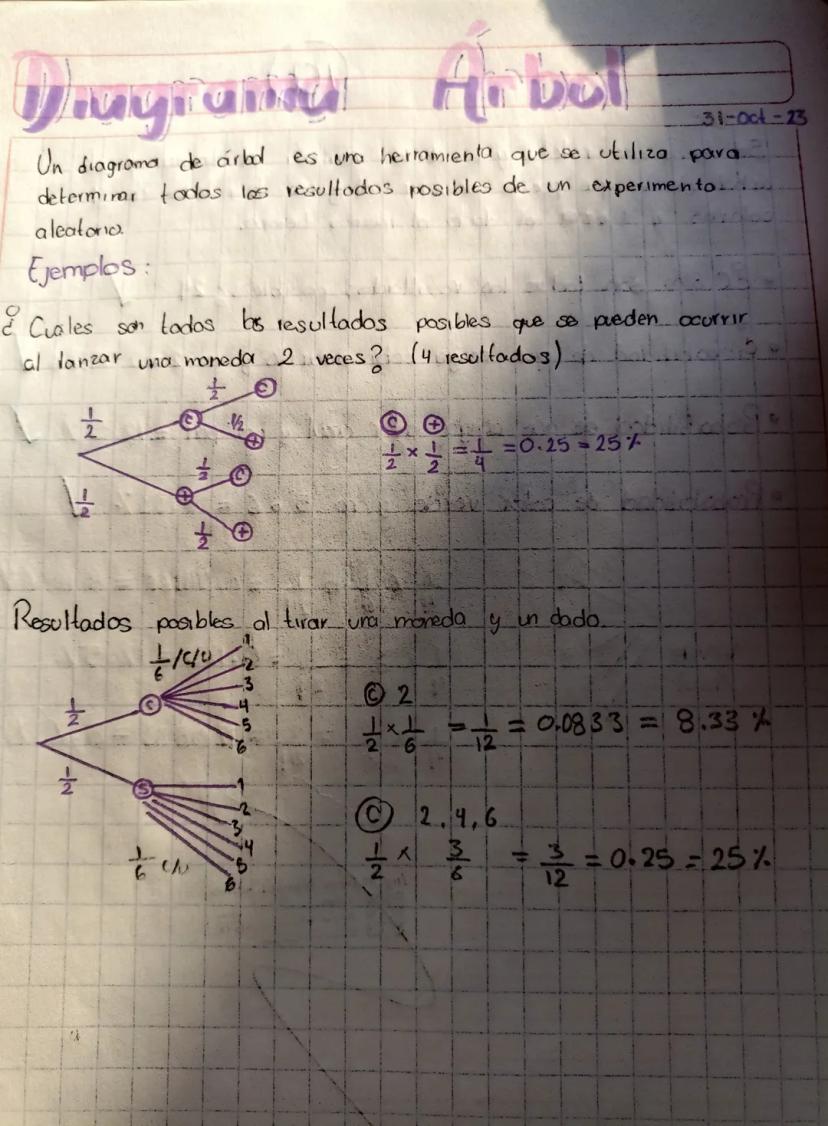 Diagrama Árbol
31-Oct-23
Un diagrama de árbol es una herramienta que se utiliza para
determinar todos los resultados posibles de un experimento
aleatorio
Ejemplos:
¿Cuales son todos los resultados posibles que se pueden ocurrir
al lanzar una moneda 2 veces? (4 resultados)
1/2 C 1/2 C
1/2 +
1/2 + 1/2 C
1/2 +
C +
1/2 x 1/2 = 1/4 = 0.25 = 25%
Resultados posibles al tirar una moneda y un dado.
1/2 C 1/6 /c/u 1
2
3
4
5
6
1/2 S 1
2
3
4
5
6
1/6 c/u
C 2
1/2 x 1/6 = 1/12 = 0.0833 = 8.33 %
C 2, 4, 6
1/2 x 3/6 = 3/12 = 0.25 = 25 %